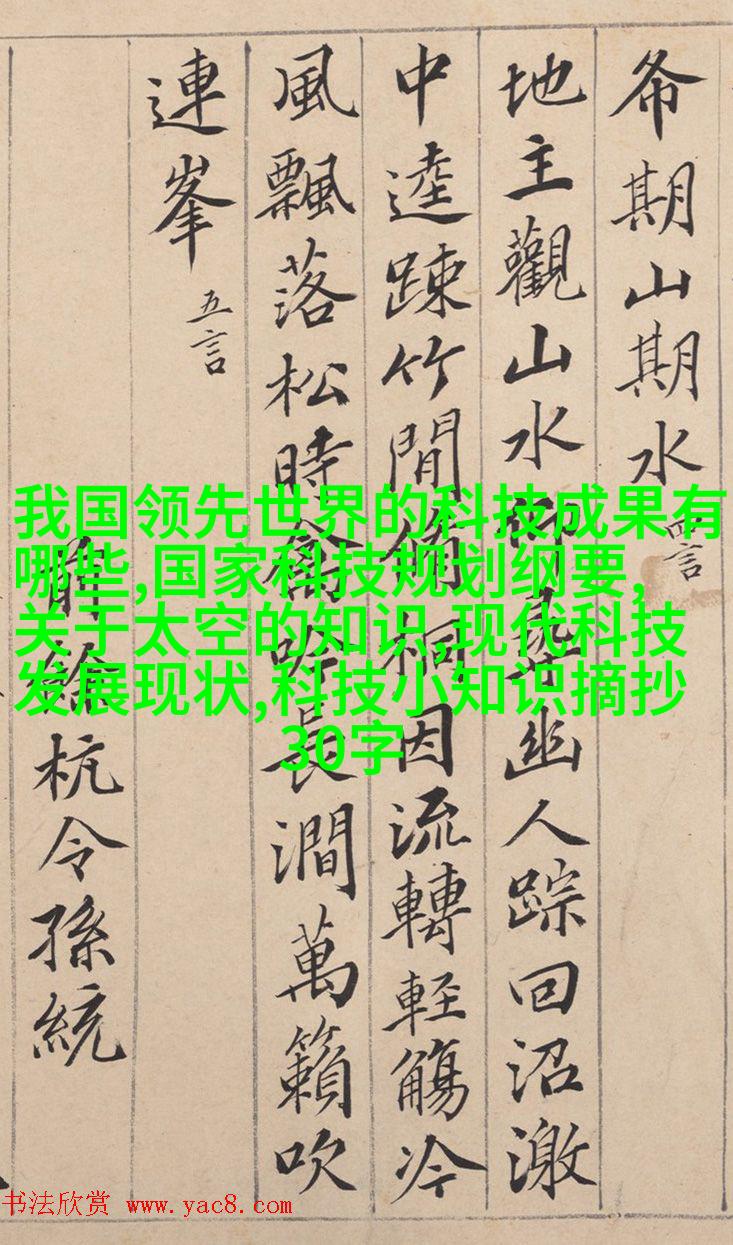 希期山期水 四言
地主觀山水仰尋幽人踪回沼激
中逵踈竹間脩桐因流轉輕觴冷
風飄落松時禽吟長澗萬籟吹
連峯 五言
前餘杭令孫統
我国领先世界的科技成果有
哪些,国家科技规划纲要,
关于太空的知识,现代科技
发展现状,科技小知识摘抄
30字
书法欣赏 www.yac8.com